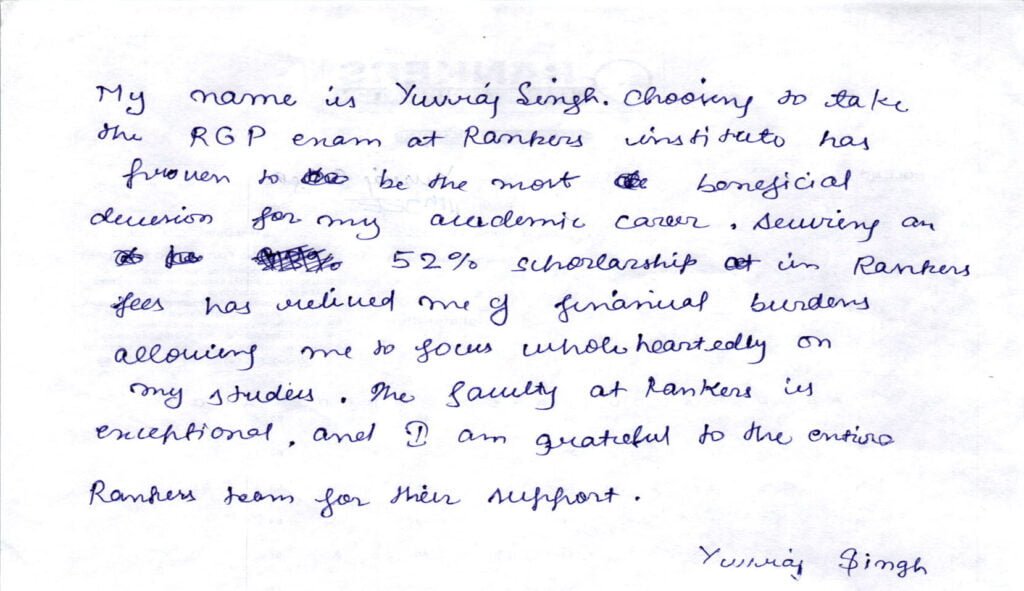 My name is Yuvraj Singh. Choosing to take
the RGP exam at Rankers institute has
proven to be the most beneficial
decision for my academic career. Securing an
52% schorlarship at in Rankers
fees has relived me of financial burdens
allowing me to focus wholeheartedly on
my studies. The faculty at Rankers is
exceptional, and I am grateful to the entire
Rankers team for their support.
Yuvraj Singh